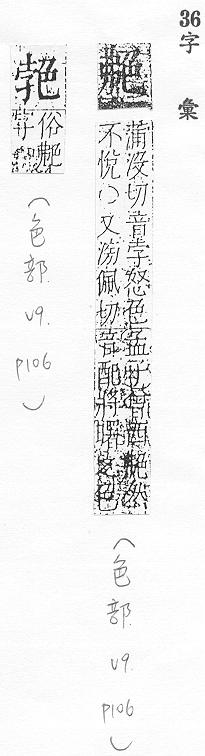 36字 彙
艴
蒲沒切音孛怒色孟子曾西艴然
不悅○又滂佩切音配將曙之色
(色部 V9. P106)
俗艴
字
(色部 V9. P106)